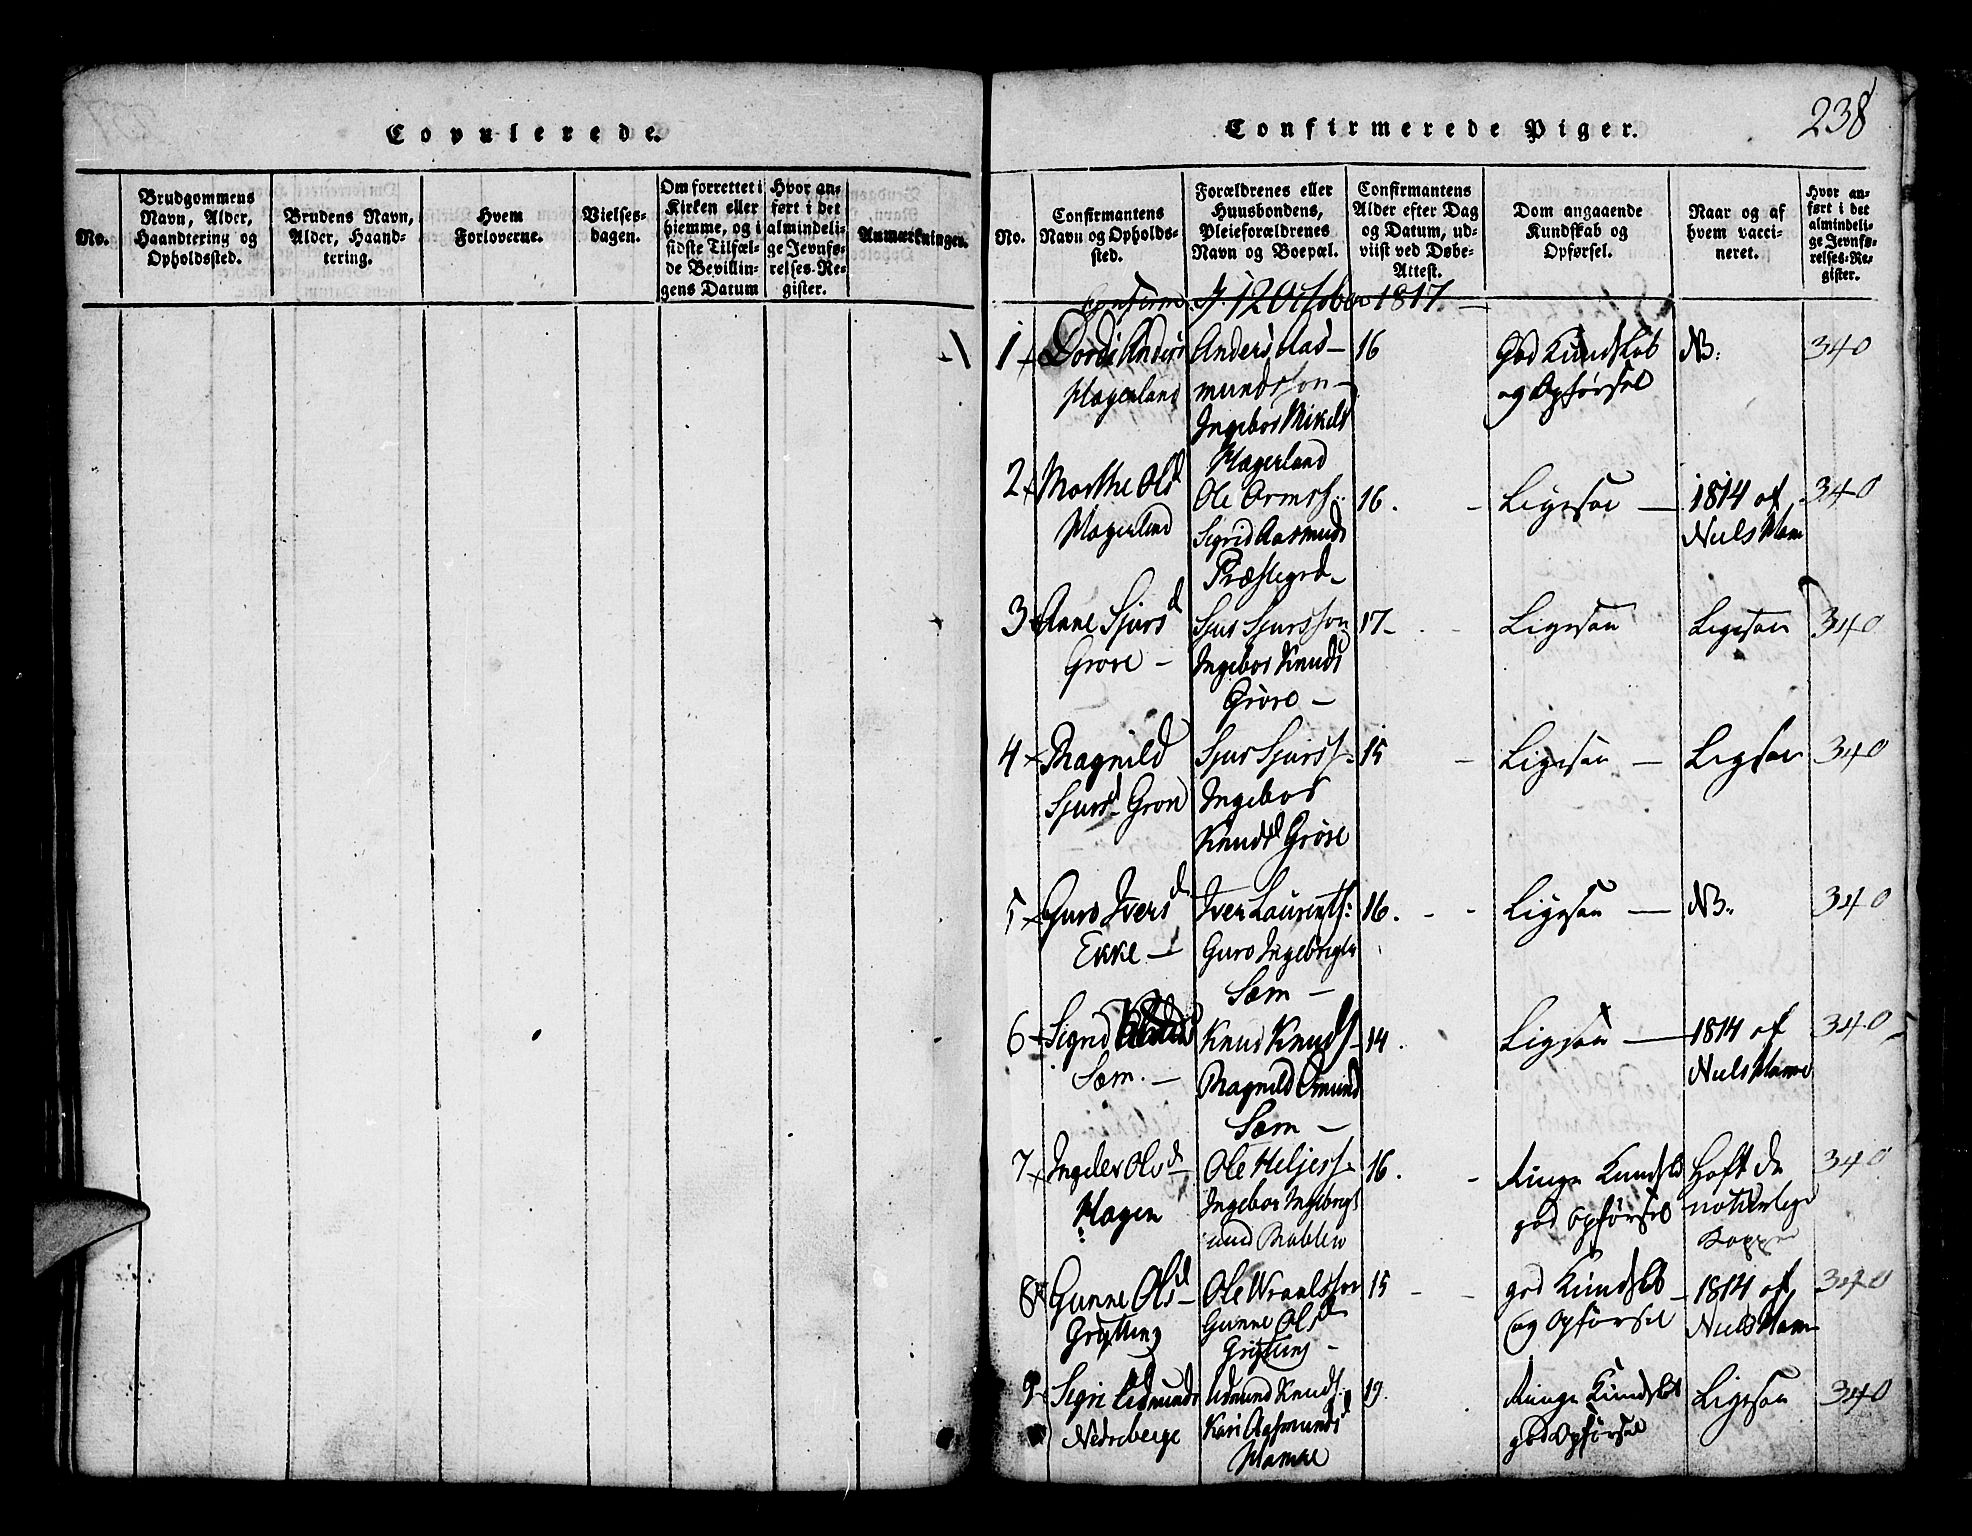 Copulerede.
No.
Brudgommens
Navn, Alder,
Haandtering og
Opholdssted.
Brudens Navn,
Alder, Haand-
tering.
Hvem
Forloverne.
Vielses-
dagen.
Om forrettet i
Kirken eller
hjemme, og i
sidste Tilfæl-
de Bevillin-
gens Datum
Hvor an-
ført i det
almindeli-
ge Jevnfø-
relses-Re-
gister.
Anmærkninger.
238
Confirmerede Piger.
No.
Confirmantens
Navn og Opholds-
sted.
Forældrenes eller
Huusbondens,
Pleieforældrenes
Navn og Boepæl.
Confirmantens
Alder efter Dag
og Datum, ud-
viist ved Døbe-
Attest.
Dom angaaende
Kundskab og
Opførsel.
Naar og af
hvem vacci-
neret.
Hvor an-
ført i det
almindeli-
ge Jevnfø-
relses-Re-
gister.
12 October 1817
1 Dordi Anders
Hagerland
Anders Aas-
mundsson
Ingebor Mikels
Hagerland
16
God Kundskab
og Opførsel
NB:
340
2 Marthe Olsd
Hagerland
Ole Ormss:
Sigrid Aasmunds
Præstegrd
16.
Ligesaa
1814 af
Niels Ham
340
3 Anne Sjursd
Grøse
Sjur Sjursson
Ingebor Knuds
Grøse
17
Ligesaa
Ligesaa
340
4 Ragnild
Sjursd
Sjur Sjurss
Ingebor
Knudsd Grøse
15
Ligesaa
Ligesaa
340
5 Guro Iversd
Ekke
Iver Laurents:
Guro Ingebrigts
Sæm
16.
Ligesaa
NB.
340
6 Sigrid
Sæm.
Knud Knuds
Ragnild Omund
Sæm
14.
Ligesaa
1814 af
Niels Hamre
340
7 Olsd
Hagen
Ole Heljess
Ingebor Ingebrigts
16.
Ringe Kundskb
god Opførsel
haft de
naturlige
Kopper
340
8 Gunne Olsd
Grytting
Ole Wraalsson
Gunne Olsd
Grytting
15
god Kundskb
og Opførsel
1814 af
Niels Ham
340
9 Sigri Edmunds
Nedreberge
Edmund Knuds.
Kari Aasmundsd
Hamre
19.
Ringe Kundskb
god Opførsel
Ligesaa
340